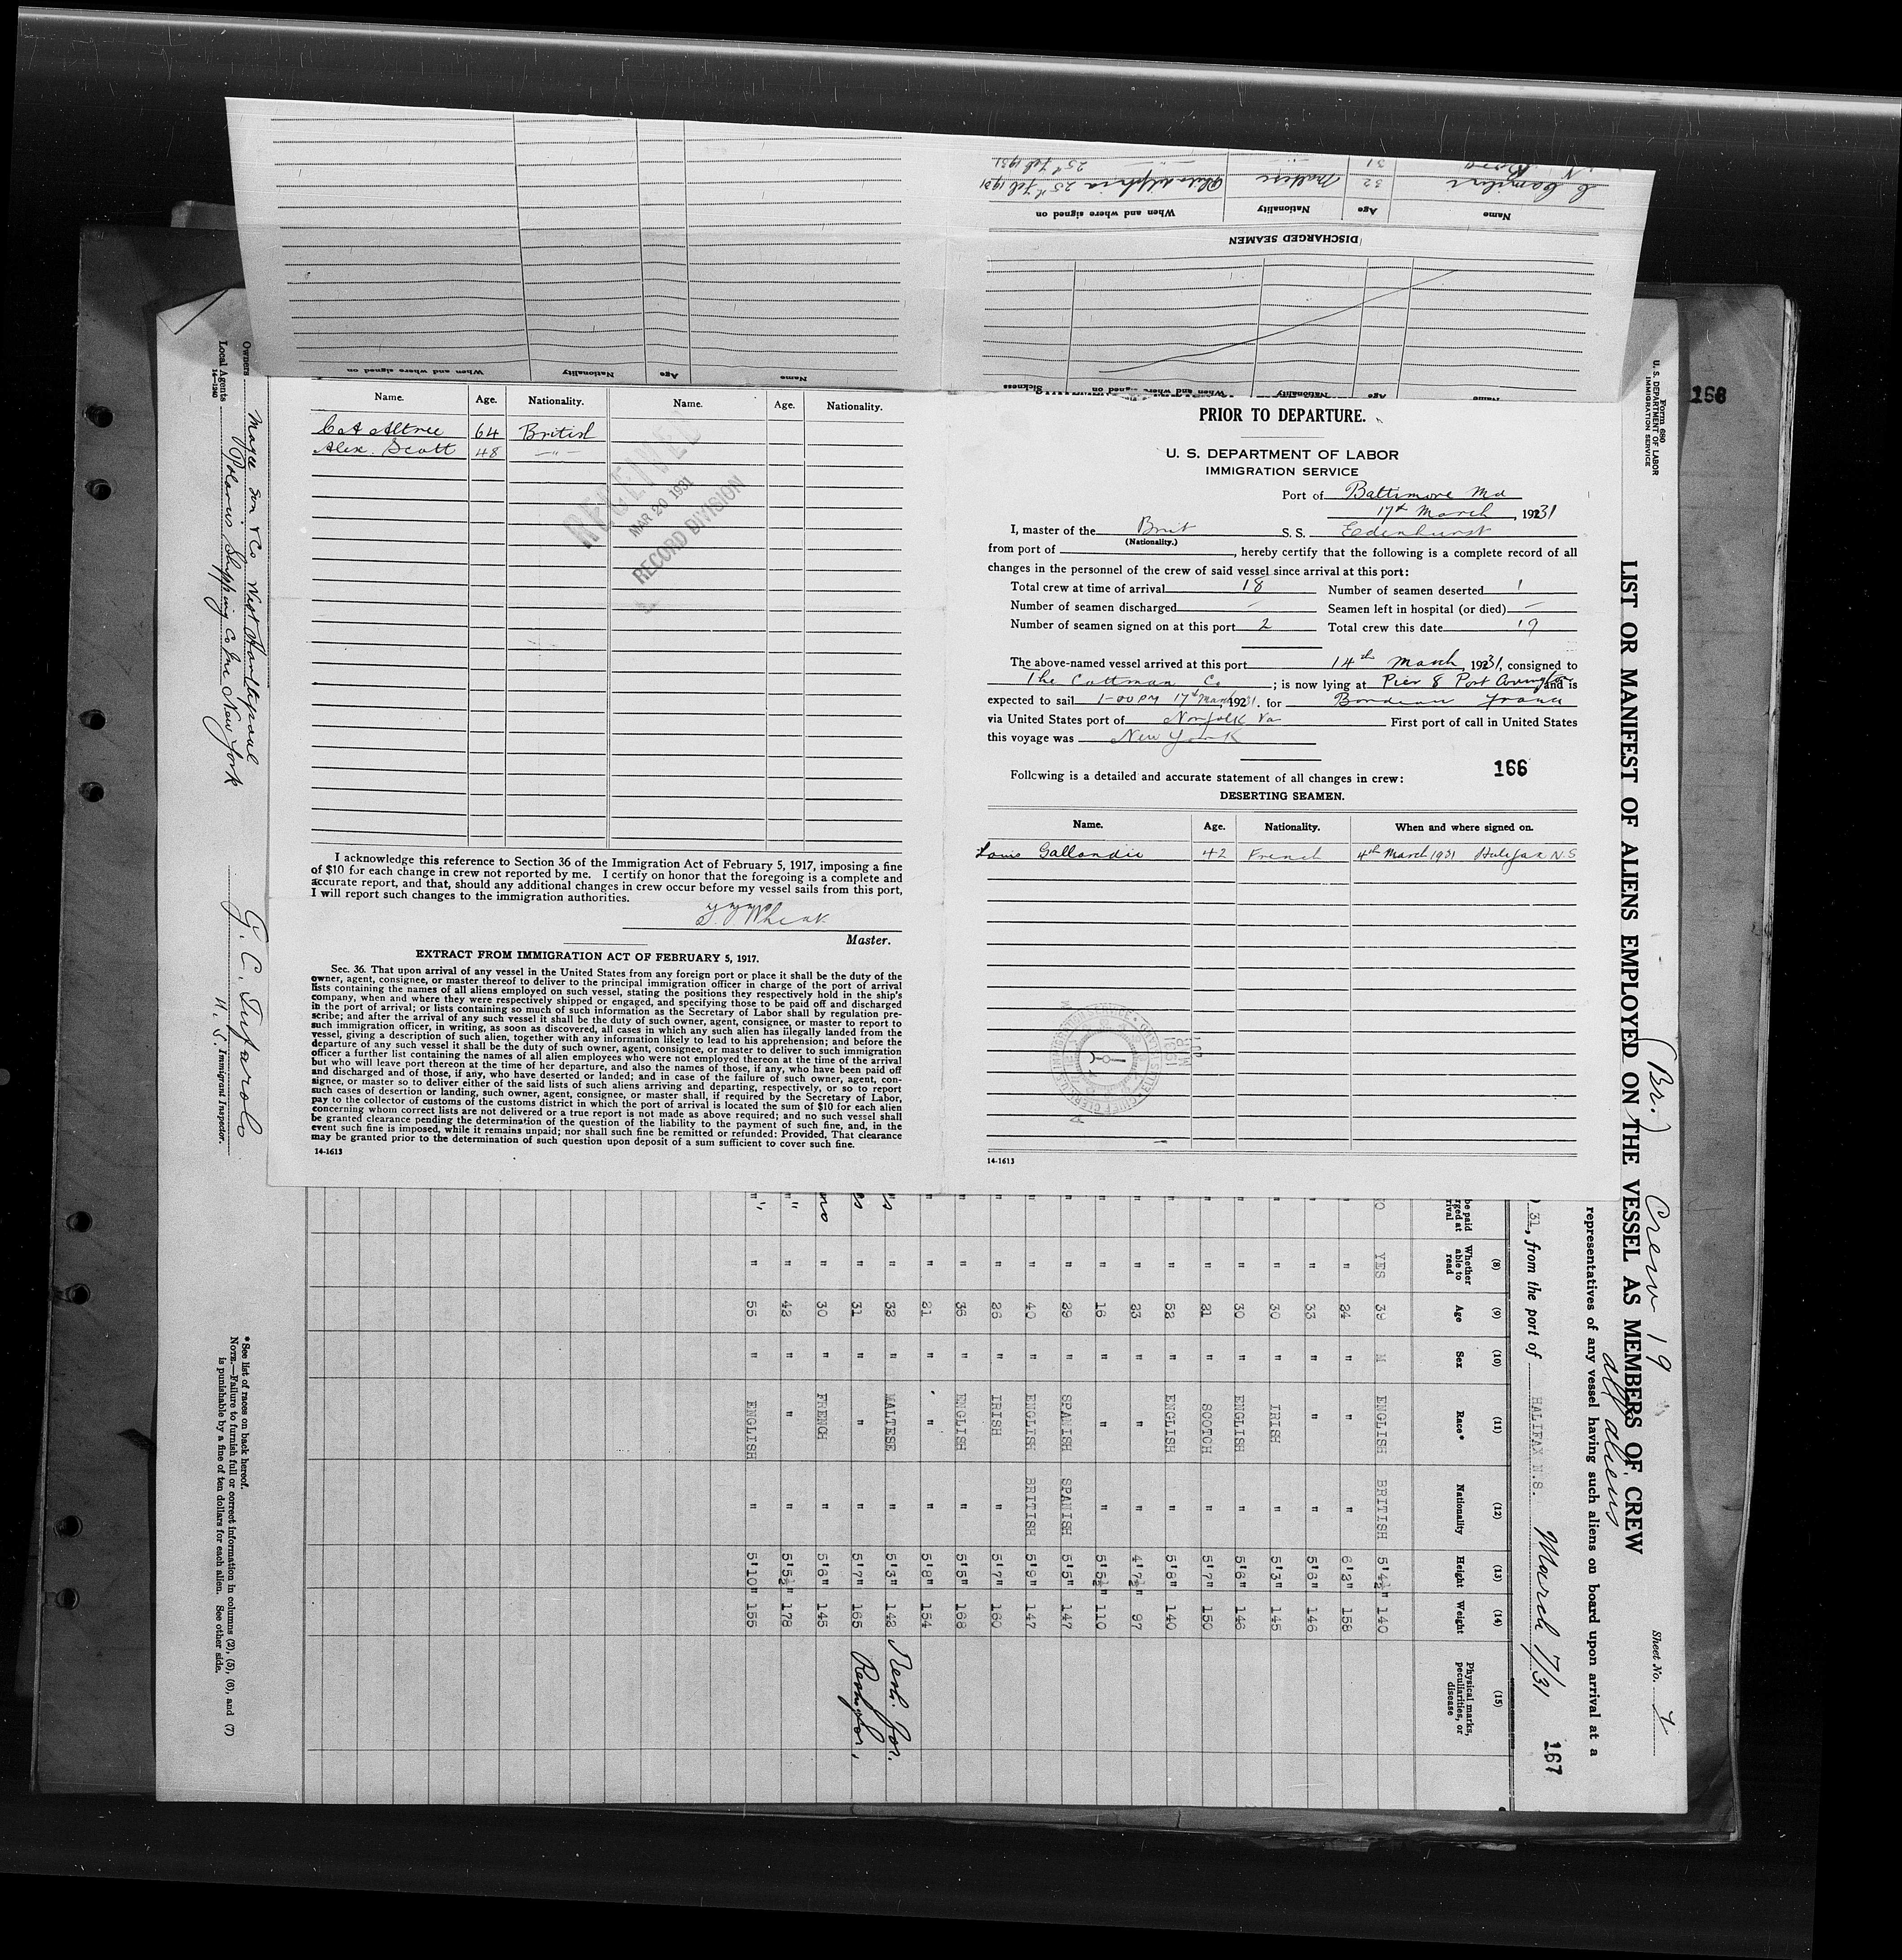 DISCHARGED SEAMEN
Name
Age
Nationality
When and where signed on
C Camilleri
32
Maltese
Philadelphia 25th Feb 1931
31
25th Feb 1931
Name
Age
Nationality
When and where signed on
Sickness
Name.
Age.
Nationality.
Name.
Age.
Nationality.
C A Altree 64 British
Alex. Scott 48 — " —
RECEIVED
MAR 20 1931
RECORD DIVISION
I acknowledge this reference to Section 36 of the Immigration Act of February 5, 1917, imposing a fine
of $10 for each change in crew not reported by me. I certify on honor that the foregoing is a complete and
accurate report, and that, should any additional changes in crew occur before my vessel sails from this port,
I will report such changes to the immigration authorities.
Master.
EXTRACT FROM IMMIGRATION ACT OF FEBRUARY 5, 1917.
Sec. 36. That upon arrival of any vessel in the United States from any foreign port or place it shall be the duty of the
owner, agent, consignee, or master thereof to deliver to the principal immigration officer in charge of the port of arrival
lists containing the names of all aliens employed on such vessel, stating the positions they respectively hold in the ship's
company, when and where they were respectively shipped or engaged, and specifying those to be paid off and discharged
in the port of arrival; or lists containing so much of such information as the Secretary of Labor shall by regulation pre-
scribe; and after the arrival of any such vessel it shall be the duty of such owner, agent, consignee, or master to report to
such immigration officer, in writing, as soon as discovered, all cases in which any such alien has illegally landed from the
vessel, giving a description of such alien, together with any information likely to lead to his apprehension; and before the
departure of any such vessel it shall be the duty of such owner, agent, consignee, or master to deliver to such immigration
officer a further list containing the names of all alien employees who were not employed thereon at the time of the arrival
but who will leave port thereon at the time of her departure, and also the names of those, if any, who have been paid off
and discharged and of those, if any, who have deserted or landed; and in case of the failure of such owner, agent, con-
signee, or master so to deliver either of the said lists of such aliens arriving and departing, respectively, or so to report
such cases of desertion or landing, such owner, agent, consignee, or master shall, if required by the Secretary of Labor,
pay to the collector of customs of the customs district in which the port of arrival is located the sum of $10 for each alien
concerning whom correct lists are not delivered or a true report is not made as above required; and no such vessel shall
be granted clearance pending the determination of the question of the liability to the payment of such fine, and, in the
event such fine is imposed, while it remains unpaid; nor shall such fine be remitted or refunded: Provided, That clearance
may be granted prior to the determination of such question upon deposit of a sum sufficient to cover such fine.
14-1613
PRIOR TO DEPARTURE.
U. S. DEPARTMENT OF LABOR
IMMIGRATION SERVICE
Port of Baltimore Md
17th March, 1931
I, master of the Brit S. S. Edenhurst
(Nationality.)
from port of , hereby certify that the following is a complete record of all
changes in the personnel of the crew of said vessel since arrival at this port:
Total crew at time of arrival 18 Number of seamen deserted 1
Number of seamen discharged — Seamen left in hospital (or died) —
Number of seamen signed on at this port 2 Total crew this date 19
The above-named vessel arrived at this port 14th March, 1931, consigned to
The Cottman Co ; is now lying at Pier 8 Port Covington and is
expected to sail 1-00 PM 17th March, 1931. for Bordeaux France
via United States port of Norfolk Va First port of call in United States
this voyage was New York
166
Following is a detailed and accurate statement of all changes in crew:
DESERTING SEAMEN.
Name. Age. Nationality. When and where signed on.
Louis Gallandie 42 French 4th March 1931 Halifax N.S
14-1613
168
Form 680
U. S. DEPARTMENT OF LABOR
IMMIGRATION SERVICE
(Br.) Crew 19
all aliens
Sheet No.
LIST OR MANIFEST OF ALIENS EMPLOYED ON THE VESSEL AS MEMBERS OF CREW
representatives of any vessel having such aliens on board upon arrival at a
31, from the port of HALIFAX N.S. March 7/31
167
(8) Whether able to read
(9) Age
(10) Sex
(11) Race*
(12) Nationality
(13) Height
(14) Weight
(15) Physical marks, peculiarities, or disease
YES 39 M ENGLISH BRITISH 5'4½" 140
" 24 " " " 6'2" 158
" 33 " " " 5'8" 146
" 30 " IRISH " 5'3" 145
" 30 " ENGLISH " 5'6" 146
" 21 " SCOTCH " 5'7" 150
" 52 " ENGLISH " 5'8" 140
" 23 " " " 4'7½" 97
" 16 " " " 5'5½" 110
" 29 " SPANISH SPANISH 5'5" 147
" 40 " ENGLISH BRITISH 5'9" 147
" 26 " IRISH " 5'7" 160
" 36 " ENGLISH " 5'5" 168
" 21 " " " 5'8" 154
" 32 " MALTESE " 5'3" 142
" 31 " " " 5'7" 165
" 30 " FRENCH " 5'6" 145
" 42 " " " 5'5½" 178
" 55 " ENGLISH " 5'10" 155
Owners Magee Son & Co West Hartlepool
Local Agents Polarus Shipping Co Inc New York
14—1240
G. C. Tufarolo
U. S. Immigrant Inspector.
*See list of races on back hereof.
NOTE.—Failure to furnish full or correct information in columns (2), (5), (6), and (7)
is punishable by a fine of ten dollars for each alien. See other side.